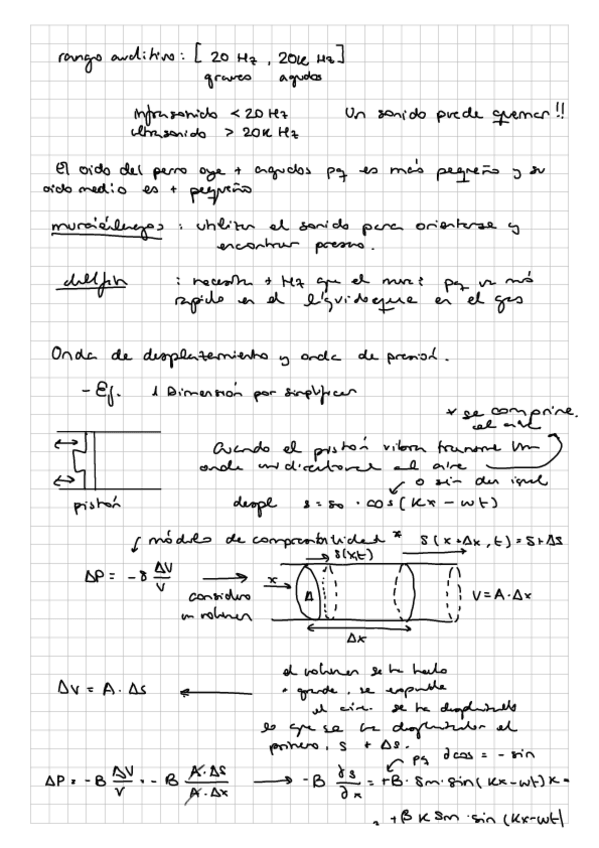 rango auditivo: [ 20 Hz , 20K Hz ]
graves agudos
infrasonido < 20 Hz Un sonido puede quemar!!
ultrasonido > 20K Hz
El oido del perro oye + agudos pq es más pequeño y su
oido medio es + pequeño
murciélagos : utilizan el sonido para orientarse y
encontrar presas.
delfín : necesita + Hz que el mur: pq va más
rápido en el líquido que en el gas
Onda de desplazamiento y onda de presión.
- Ej. 1 Dimensión por simplificar
* se comprime
el aire
Cuando el pistón vibra transmite una
onda unidireccional al aire
o sin da igual
pistón despl s = so · cos (Kx - wt)
módulo de compresibilidad * s(x+Δx, t) = s+Δs
s(x,t)
ΔP = - B ΔV/V considero x A V = A·Δx
un volumen
Δx
el volumen se ha hecho
ΔV = A · Δs + grande, se expande
el aire. se ha desplazado
lo que se ha desplazado el
primero, s + Δs.
pq ∂cos = - sin
ΔP = - B ΔV/V = - B A·Δs/A·Δx → - B ∂s/∂x = +B · Sm · sin(Kx-wt)K =
= +B K Sm · sin (Kx-wt)